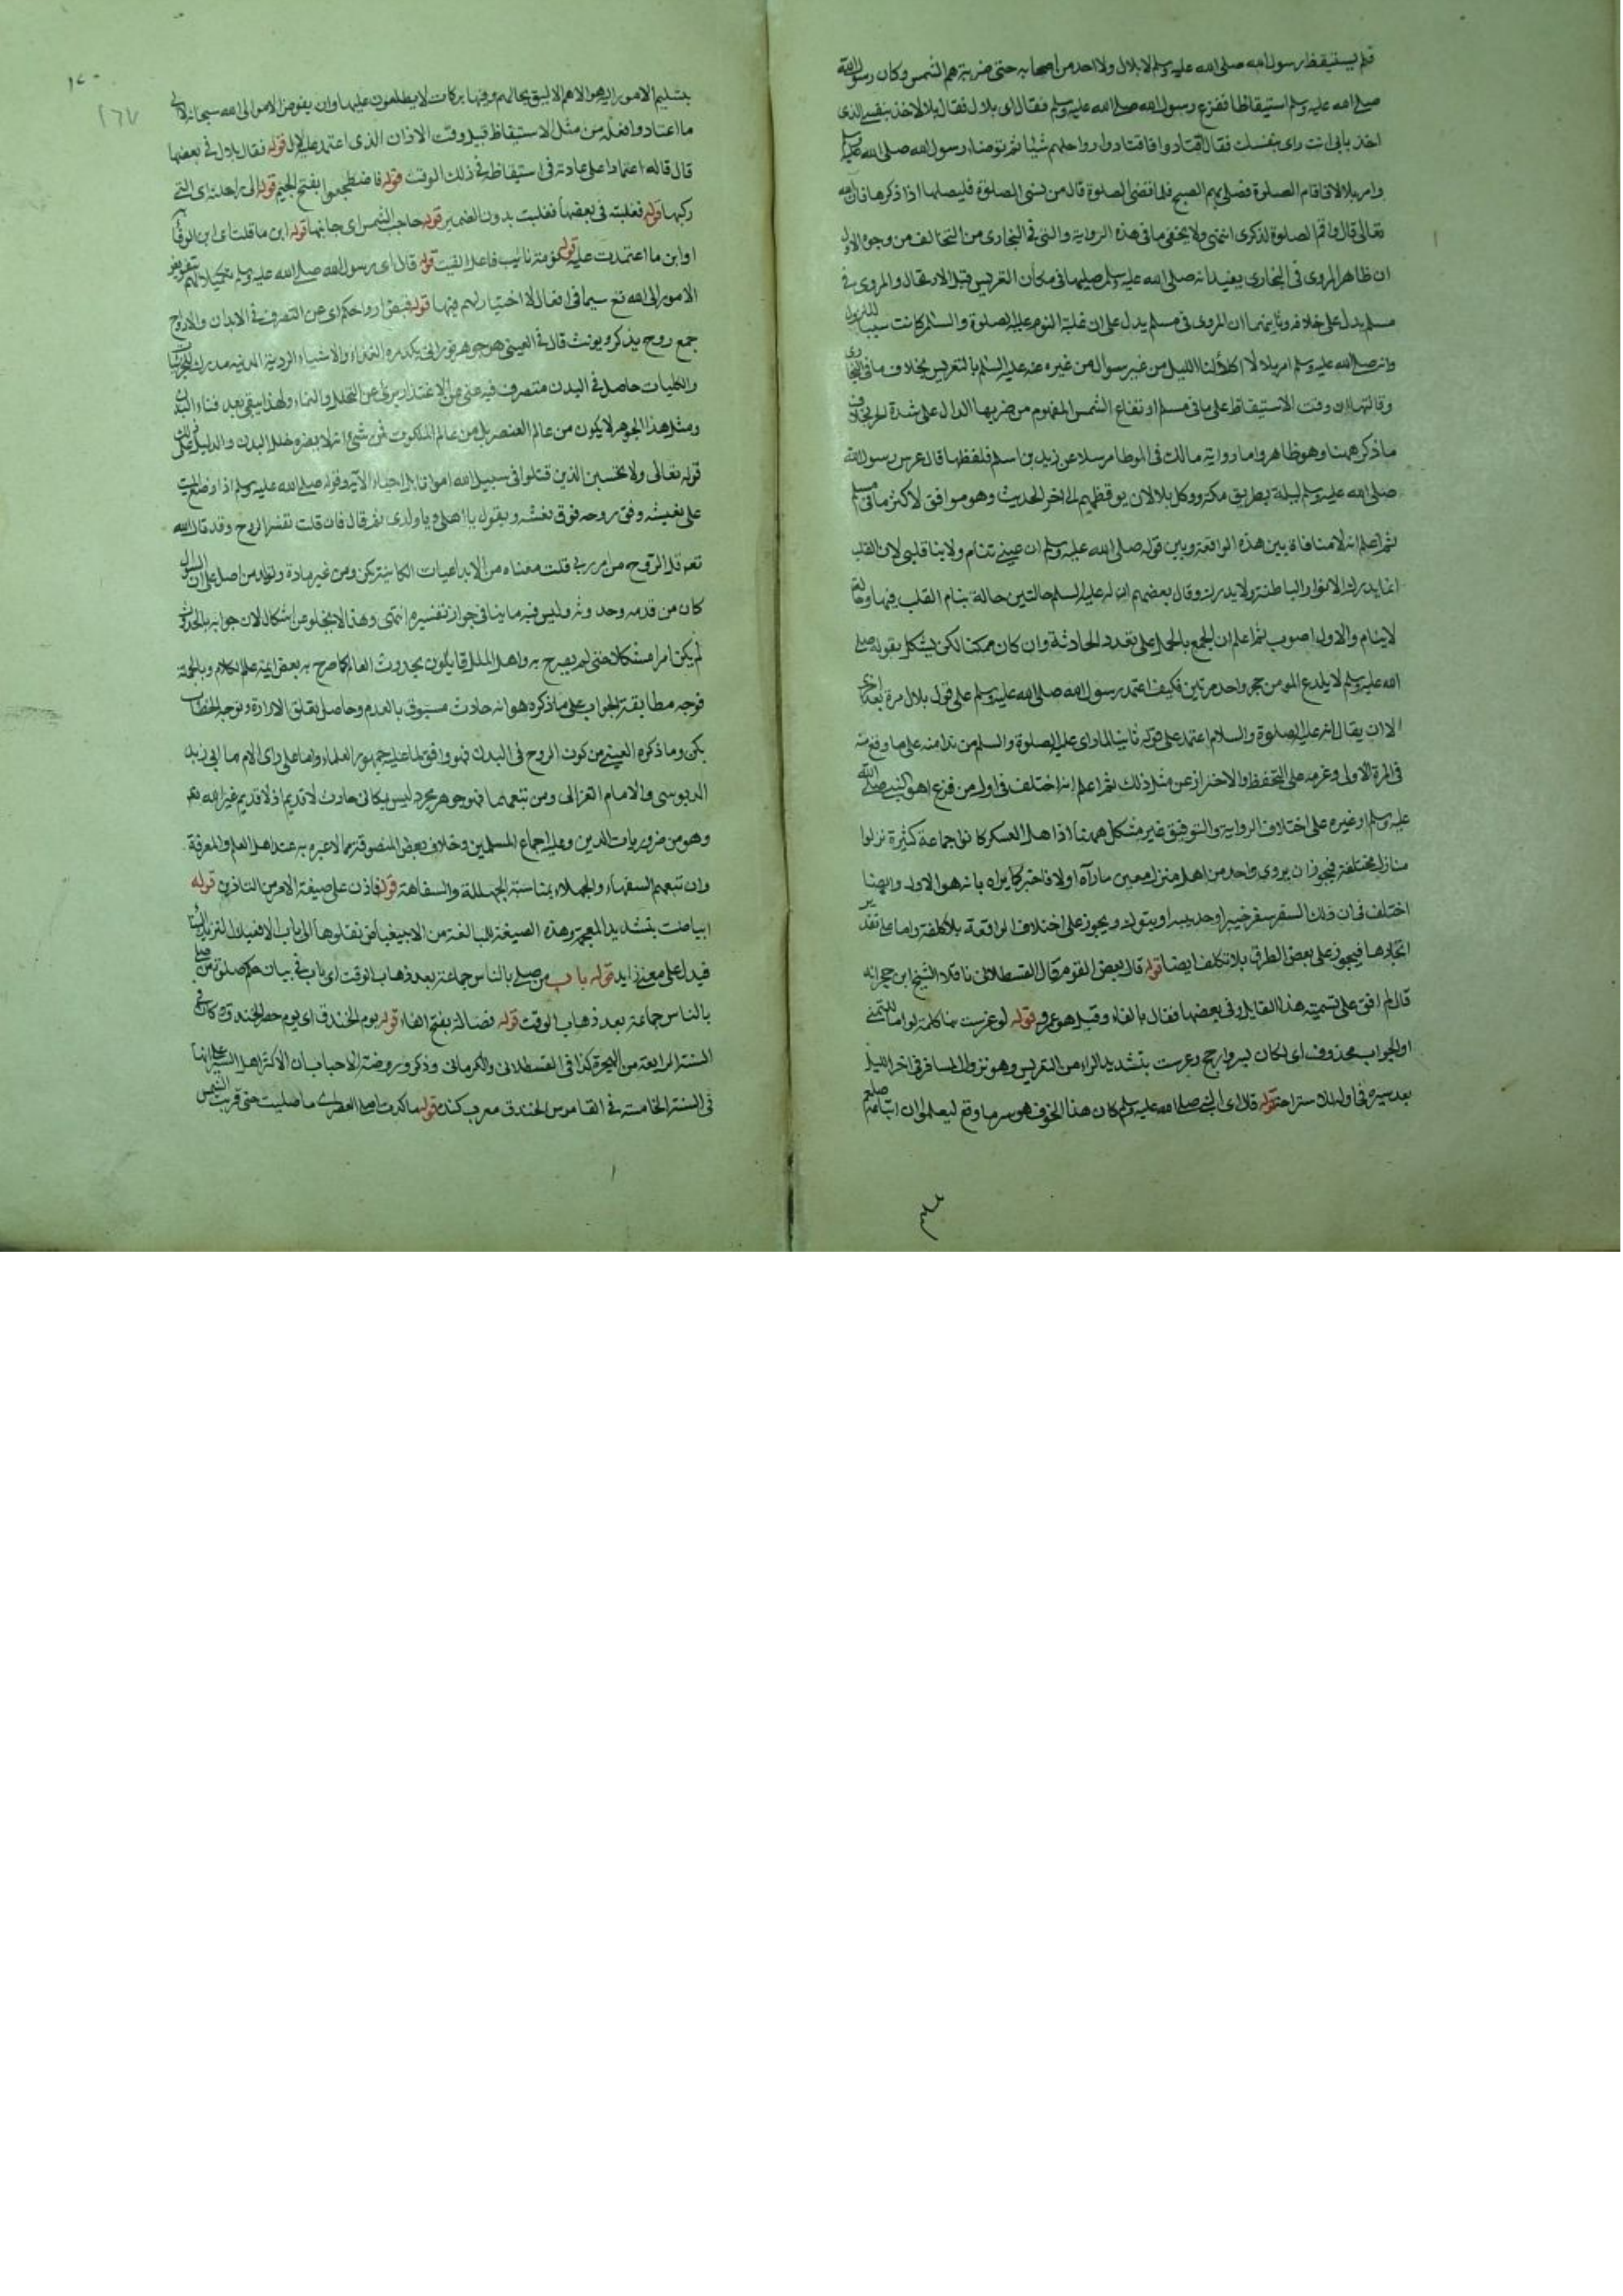 فلم يستيقظ رسول الله صلى الله عليه وسلم لا بلال ولا احد من اصحابه حتى ضربتهم الشمس وكان رسول الله
صلى الله عليه وسلم استيقاظا ففزع رسول الله صلى الله عليه وسلم فقال اى بلال فقال بلال اخذ بنفسى الذى
اخذ بابى انت راى بنفسك فقال اقتادوا فاقتادوا رواحلهم شيئا ثم توضاء رسول الله صلى الله عليه وسلم
وامر بلالا فاقام الصلوة فصلى بهم الصبح فلما قضى الصلوة قال من نسى الصلوة فليصلها اذا ذكرها فان الله
تعالى قال واقم الصلوة لذكرى انتهى ولا يخفى ما فى هذه الرواية والتى فى البخارى من التخالف من وجوه الاول
ان ظاهر المروى فى البخارى يفيد انه صلى الله عليه وسلم صليها فى مكان التعريس قبل الارتحال والمروى فى
مسلم يدل على خلافه وثانيهما ان المروى فى مسلم يدل على ان غلبة النوم عليه الصلوة والسلام كانت سببا للنزول
وانه صلى الله عليه وسلم امر بلالا اكلألنا الليل من غير سوال من غيره عنه عليه السلم بالتعريس بخلاف ما فى البخارى
وثالثها ان وقت الاستيقاظ على ما فى مسلم ارتفاع الشمس المفهوم من ضربها الدال على شدة الحر بخلاف
ما ذكر ههنا وهو ظاهر واما رواية مالك فى الموطا مرسلا عن زيد بن اسلم فلفظها قال عرس رسول الله
صلى الله عليه وسلم ليلة بطريق مكة ووكل بلالا ان يوقظهم الى اخر الحديث وهو موافق لاكثر ما فى مسلم
ثم اعلم انه لا منافاة بين هذه الواقعة وبين قوله صلى الله عليه وسلم ان عينى تنام ولا ينام قلبى لان القلب
انما يدرك الانوار الباطنة ولا يدرك وقال بعضهم ان له عليه السلم حالتين حالة ينام القلب فيها وحالة
لا ينام والاول اصوب ثم اعلم ان الجمع بالحمل على تعدد الحادثة وان كان ممكنا لكن يشكل بقوله صلى
الله عليه وسلم لا يلدغ المومن من جحر واحد مرتين فكيف اعتمد رسول الله صلى الله عليه وسلم على قول بلال مرة بعد اخرى
الا ان يقال انه عليه الصلوة والسلام اعتمد على قوله ثانيا لما راى عليه الصلوة والسلم من ندامته على ما وقع منه
فى المرة الاولى وعزمه على التحفظ والاحتراز عن مثل ذلك ثم اعلم انه اختلف فى اول من فزع اهو النبى صلى الله
عليه وسلم او غيره على اختلاف الرواية والتوفيق غير مشكل ههنا اذا هل العسكر كانوا جماعة كثيرة نزلوا
منازل مختلفة فيجوز ان يروى واحد من اهل منزل معين ما رآه اولا فاخبر كما يراه بانه هو الاول وايضا
اختلف فى ان ذلك السفر سفر خيبر او حديبية او تبوك ويجوز على اختلاف الواقعة بلا كلفة واما على تقدير
اتحادها فيجوز على بعض الطرق بلا تكلف ايضا قوله قال بعض القوم قال القسطلانى ناقلا الشيخ ابن حجر انه
قال لم اقف على تسمية هذا القايل وفى بعضها فقال بالفاء وقيل هو عمر قوله لو عرست بنا كلمة لو اما للتمنى
او الجواب محذوف اى لكان يسر وارجح وعرست بتشديد الراء من التعريس وهو نزول المسافر فى اخر الليل
بعد سيره فى اوله للاستراحة قوله قال اى النبى صلى الله عليه وسلم كان هذا الخوف هو سر ما وقع ليعلموا ان
١٧٠
١٦٧
بتسليم الامور اليه هو الاهم الاليق بحالهم وفيها بركات لا يطلعون عليها وان يفوض الامور الى الله سبحانه
ما اعتادوا فعله من مثل الاستيقاظ قبل وقت الاذان الذى اعتمد عليه بلال قوله فقال بلال فى بعضها
قال قاله اعتمادا على عادته فى استيقاظه فى ذلك الوقت قوله فاضطجعوا بفتح الجيم قوله الى راحلته اى التى
ركبها قوله فغلبته فى بعضها فغلبت بدون الضمير قوله حاجب الشمس اى جانبها قوله اين ما قلت اى اين الوفاء
او اين ما اعتمدت عليه قوله نومة نائب فاعل القيت قوله قال اى رسول الله صلى الله عليه وسلم
الامور الى الله تع سيما فى افعال لا اختيار لهم فيها قوله قبض ارواحكم اى عن التصرف فى الابدان والارواح
جمع روح يذكر ويونث قال فى العينى هو جوهر نورانى يكدره الغذاء والاشياء الردية الدنية مدرك للجزئيات
والكليات حاصل فى البدن متصرف فيه غنى عن الاغتذاء برئ عن التحلل والنماء ولهذا يبقى بعد فناء البدن
ومثل هذا الجوهر لا يكون من عالم العنصر بل من عالم الملكوت فمن شئ انه لا يضره خلل البدن والدليل على ذلك
قوله تعالى ولا تحسبن الذين قتلوا فى سبيل الله امواتا بل احياء الآية وقوله صلى الله عليه وسلم اذا وضع الميت
على نعشه رفرف روحه فوق نعشه ويقول يا اهلى ويا ولدى ثم قال فان قلت تفسر الروح وقد قال الله
تعم قل الروح من امر ربى قلت معناه من الابداعيات الكائنة بكن ومن غير مادة وتولد من اصل على ان السؤال
كان من قدمه وحدوثه وليس فيه ما ينافى جواز تفسيره انتهى وهذا لا يخلو عن اشكال لان جوابه بالحدوث
لم يكن امرا مشكلا حتى لم يصرح به واهل الملل قايلون بحدوث العالم كما صرح به بعض ايمة علم الكلام وبالجملة
فوجه مطابقة الجواب على ما ذكره هو انه حادث مسبوق بالعدم وحاصل بتعلق الارادة وتوجه الخطاب
بكن وما ذكره العينى من كون الروح فى البدن فهو وافق لما عليه جمهور العلماء واما على راى الامام ابى زيد
الدبوسى والامام الغزالى ومن تبعهما فهو جوهر مجرد ليس بمكانى حادث لا قديم اذ لا قديم غير الله تعم
وهو من ضروريات الدين وعليه اجماع المسلمين وخلاف بعض المتصوفة مما لا عبرة به عند اهل العلم والمعرفة
وان تبعهم السفهاء والجهلاء بمناسبة الجهالة والسفاهة قوله فاذن على صيغة الامر من التاذين قوله
ابياضت بتشديد المعجمة وهذه الصيغة للمبالغة من الابيضاض نقلوها الى باب الافعيلال لتزيد البناء
فيدل على معنى زايد قوله باب من صلى بالناس جماعة بعد ذهاب الوقت اى باب فى بيان حكم صلوة من صلى
بالناس جماعة بعد ذهاب الوقت قوله فضالة بفتح الفاء قوله يوم الخندق اى يوم حفر الخندق كان فى
السنة الرابعة من الهجرة كذا فى القسطلانى والكرمانى وذكر فى روضة الاحباب ان الاكثر اهل السير على انها
فى السنة الخامسة فى القاموس الخندق معرب كنده قوله ما كدت اصلى العصر اى ما صليت حتى قربت الشمس